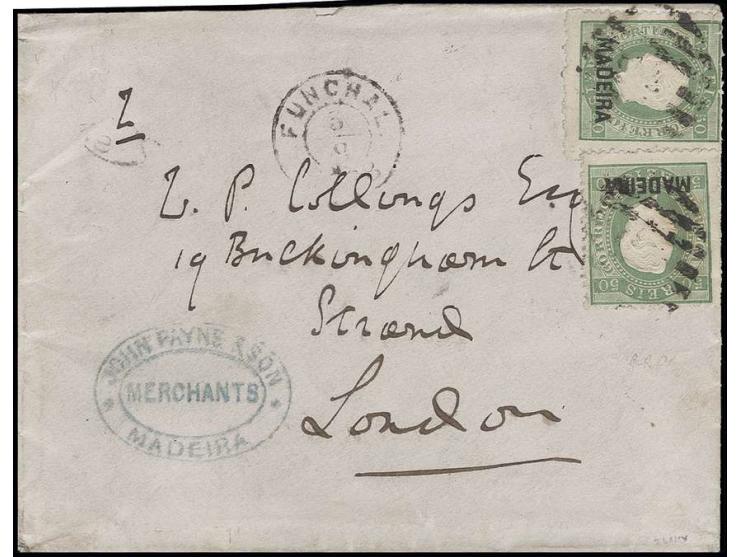 MADEIRA
FUNCHAL
MADEIRA
CORREIO
REIS 50
L. P. Collings Esq
19 Buckingham St
Strand
London
JOHN PAYNE & SON
MERCHANTS
MADEIRA